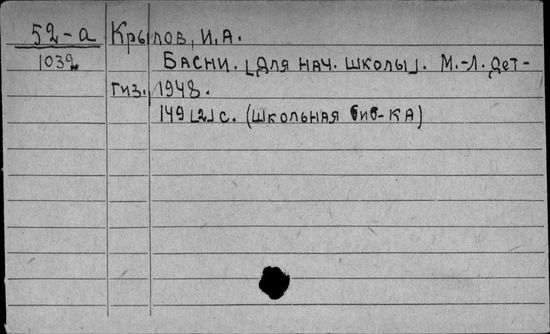 52-а Крылов, И.А.
1032 Басни. [Для нач. школы]. М.-Л. Дет-
гиз. 1948.
149 [2] с. (Школьная биб-ка)